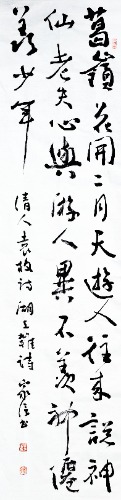 葛嶺花開二月天遊人往來說神
仙老夫心與游人異不羨神僊
羨少年
清人袁枚詩湖上雜詩 家佳書